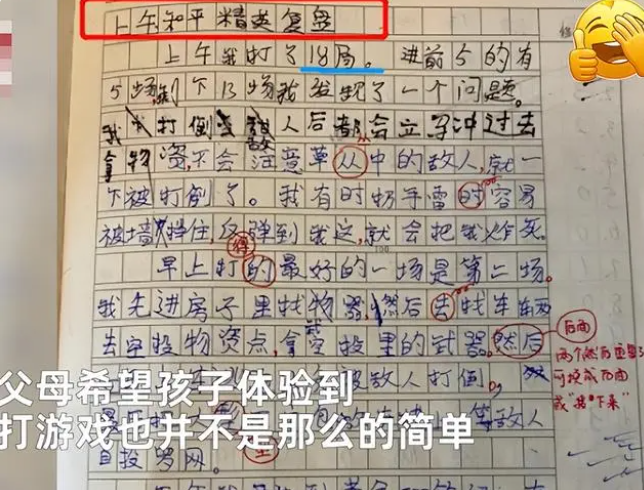 上午和平精英复盘
上午我打了18局。进前5的有
5场,剩下13场我发现了一个问题。
我打倒敌人后都会立马冲过去
拿物资,不会注意草从中的敌人,就一
下被打倒了。我有时扔手雷的容易
被墙挡住,反弹到我这,就会把我炸死。
得
早上打的最好的一场是第二场。
我先进房子里找武器,然后去找车辆
去空投物资点,拿空投里的武器,然后
后面
两个然后
可换成后面
或"接下来"
被敌人打倒,
等敌人
自投罗网。
父母希望孩子体验到
打游戏也并不是那么的简单